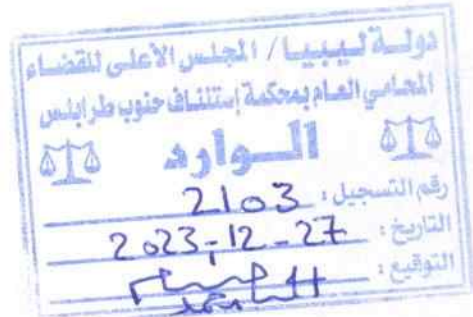 دولـــة لـيـبـيـــا / المجلس الأعلى للقضـــاء
المحامي العـام بمحكمة إستئناف جنوب طرابلس
الـــوارد
رقم التسجيل : 2103
التاريخ : 2023-12-27
التوقيع :